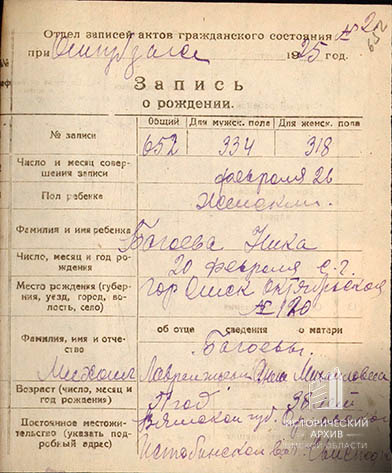 Отдел записей актов гражданского состояния №
при 1925 год.
Запись
о рождении.
Общий Для мужск. пола Для женск. пола
№ записи 652 334 318
Число и месяц совер-
шения записи февраля 26
Пол ребенка Женский.
Фамилия и имя ребенка Багоева Ника
Число, месяц и год ро-
ждения 20 февраля с. г.
Место рождения (губер-
ния, уезд, город, во-
лость, село) гор Омск Октябрьская
№ 120
об отце сведения о матери
Фамилия, имя и отче-
ство Багоевы
Михаил Лаврентьев Анна Михайловна
Возраст (число, месяц и
год рождения) год
Постоянное местожи-
тельство (указать по-
дробный адрес) Вятской губ.
ИСТОРИЧЕСКИЙ
АРХИВ
ОМСКОЙ ОБЛАСТИ